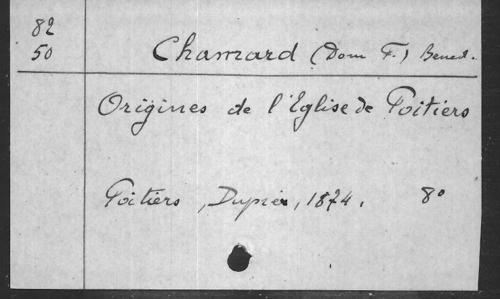 82
50
Chamard (Dom F.) Bened.
Origines de l'Eglise de Poitiers
Poitiers, Dupré, 1874. 8°